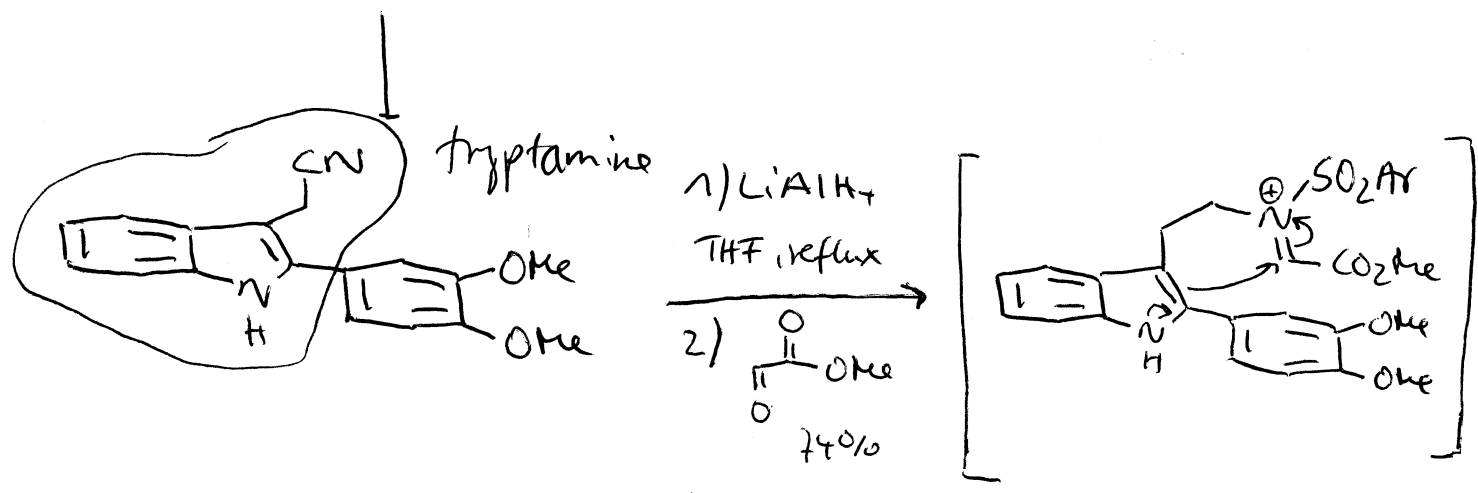 CN
tryptamine
N
H
OMe
OMe
1) LiAlH4
THF, reflux
2)
O
OMe
O
74%
⊕
N
SO2Ar
CO2Me
N
H
OMe
OMe